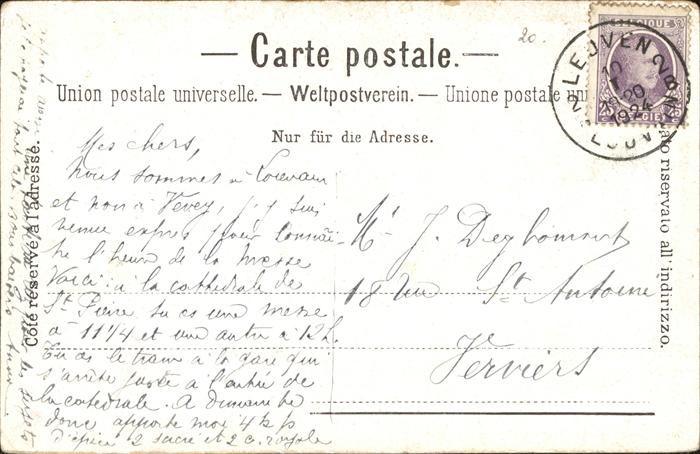 20.
— Carte postale. —
Union postale universelle. — Weltpostverein. — Unione postale uni
Nur für die Adresse.
Côté réservé à l'adresse.
ato riservato all' indirizzo.
BELGIQUE
LEUVEN
20
1924
LOUV
Mes chers,
Nous sommes à Louvain
et non à Vevey, j'y suis
venue exprès pour connaî-
tre l'heure de la messe
Voici: à la cathédrale de
St Pierre tu as une messe
à 11 1/4 et une autre à 12 h.
Tu as le tram à la gare qui
s'arrête juste à l'entrée de
la cathédrale. A dimanche
donc apporte moi 4 k p
d'épice 2 sacré et 2 c. royale
Mr J. Deghomont
18 rue St Antoine
Verviers